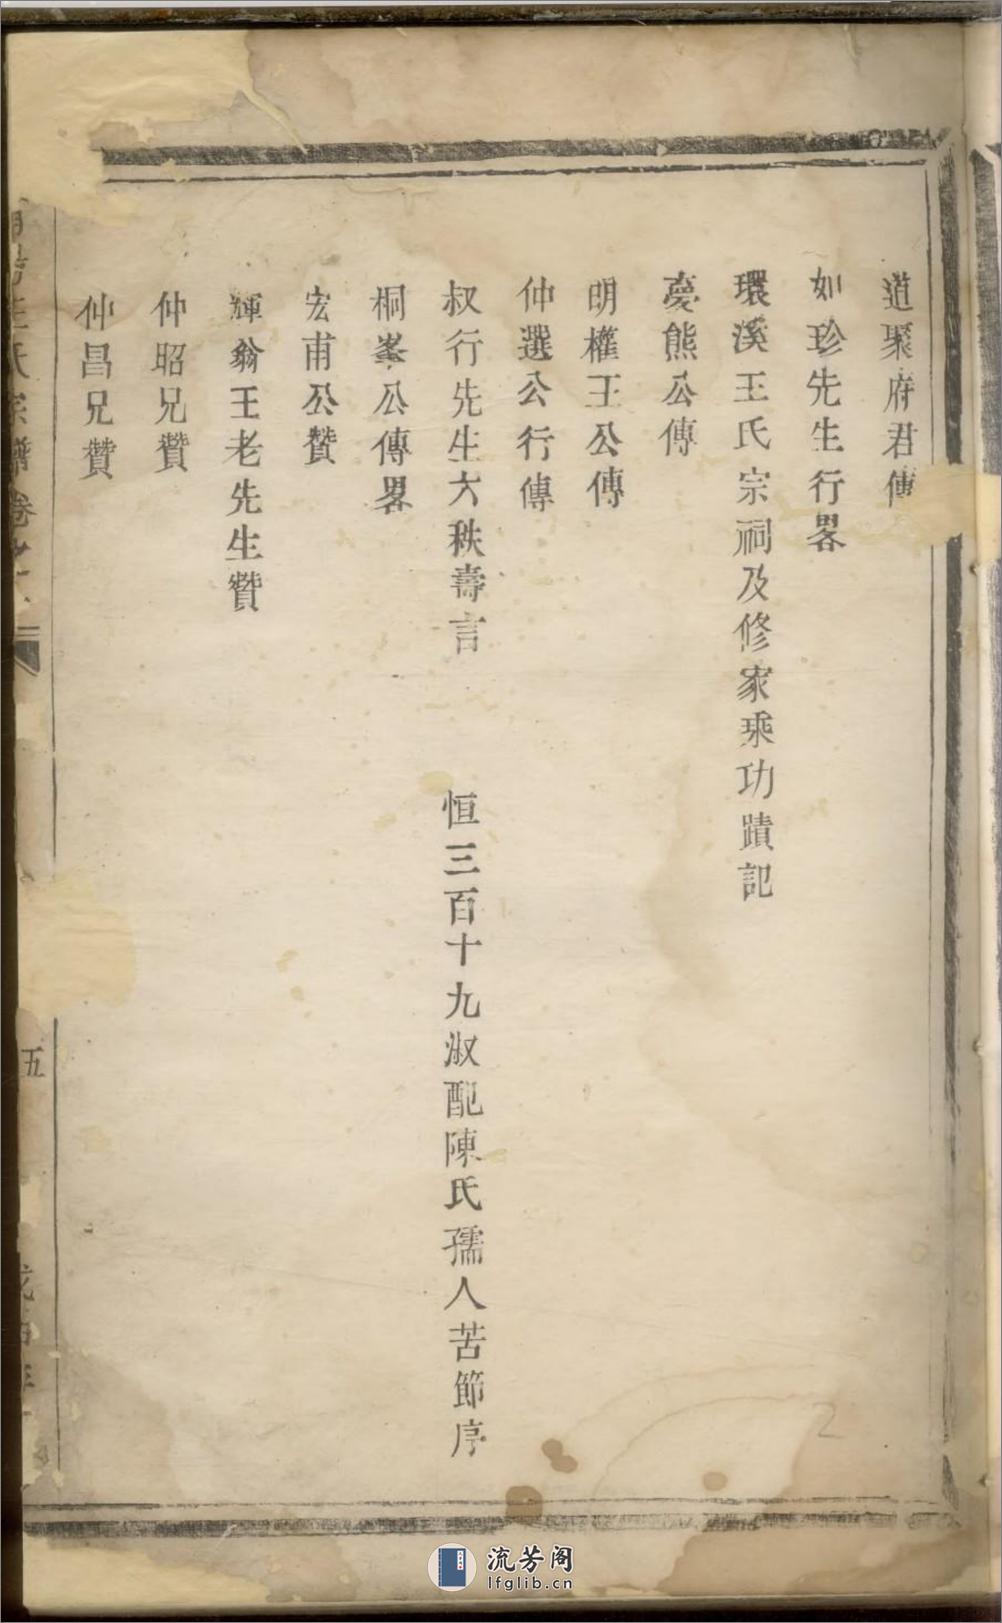 道聚府君傳
如珍先生行畧
環溪王氏宗祠及修家乘功蹟記
夢熊公傳
明權王公傳
仲選公行傳
叔行先生六秩壽言 恒三百十九淑配陳氏孺人苦節序
桐峯公傳畧
宏甫公贊
輝翁王老先生贊
仲昭兄贊
仲昌兄贊
氏宗譜卷
五
2
流芳阁
lfglib.cn